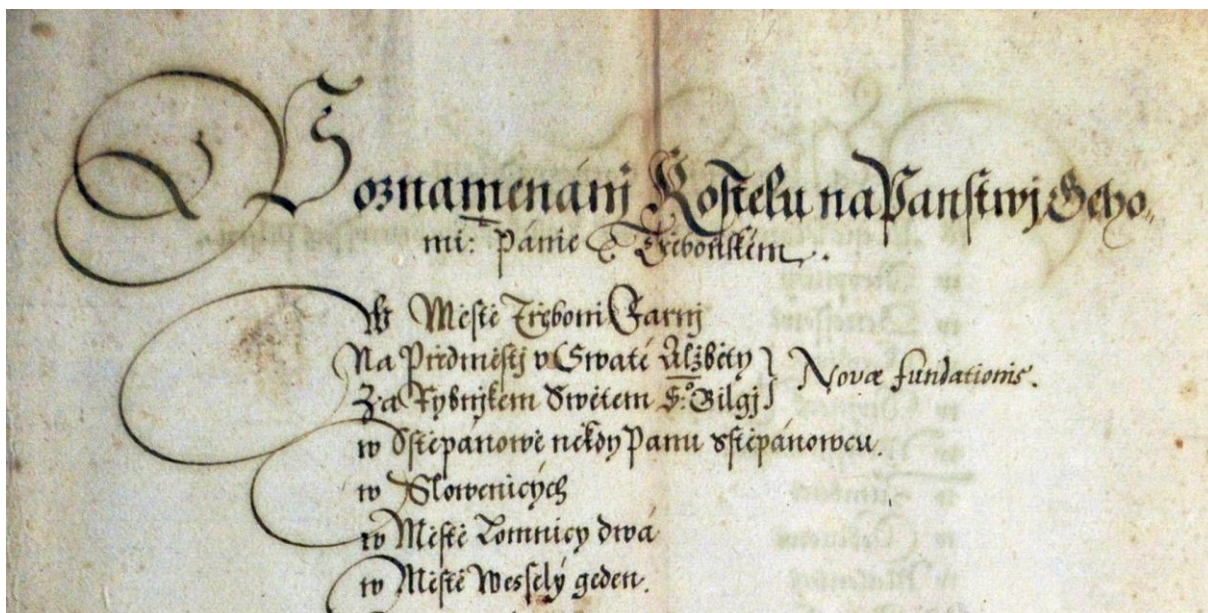 Poznamenánj Kostelu na Panstwj Geho
mi: Pánie Třebonském.
W Městě Třeboni Farnj
Na Předměstj v Swaté Alžběty } Novæ fundationis.
Za Rybnjkem Swětem S: Gilgj
w Sstěpánowě někdy Panu Sstěpánowcu.
w Slowenicých
w Městě Lomnicy dwá
w Městě Wesselý geden.